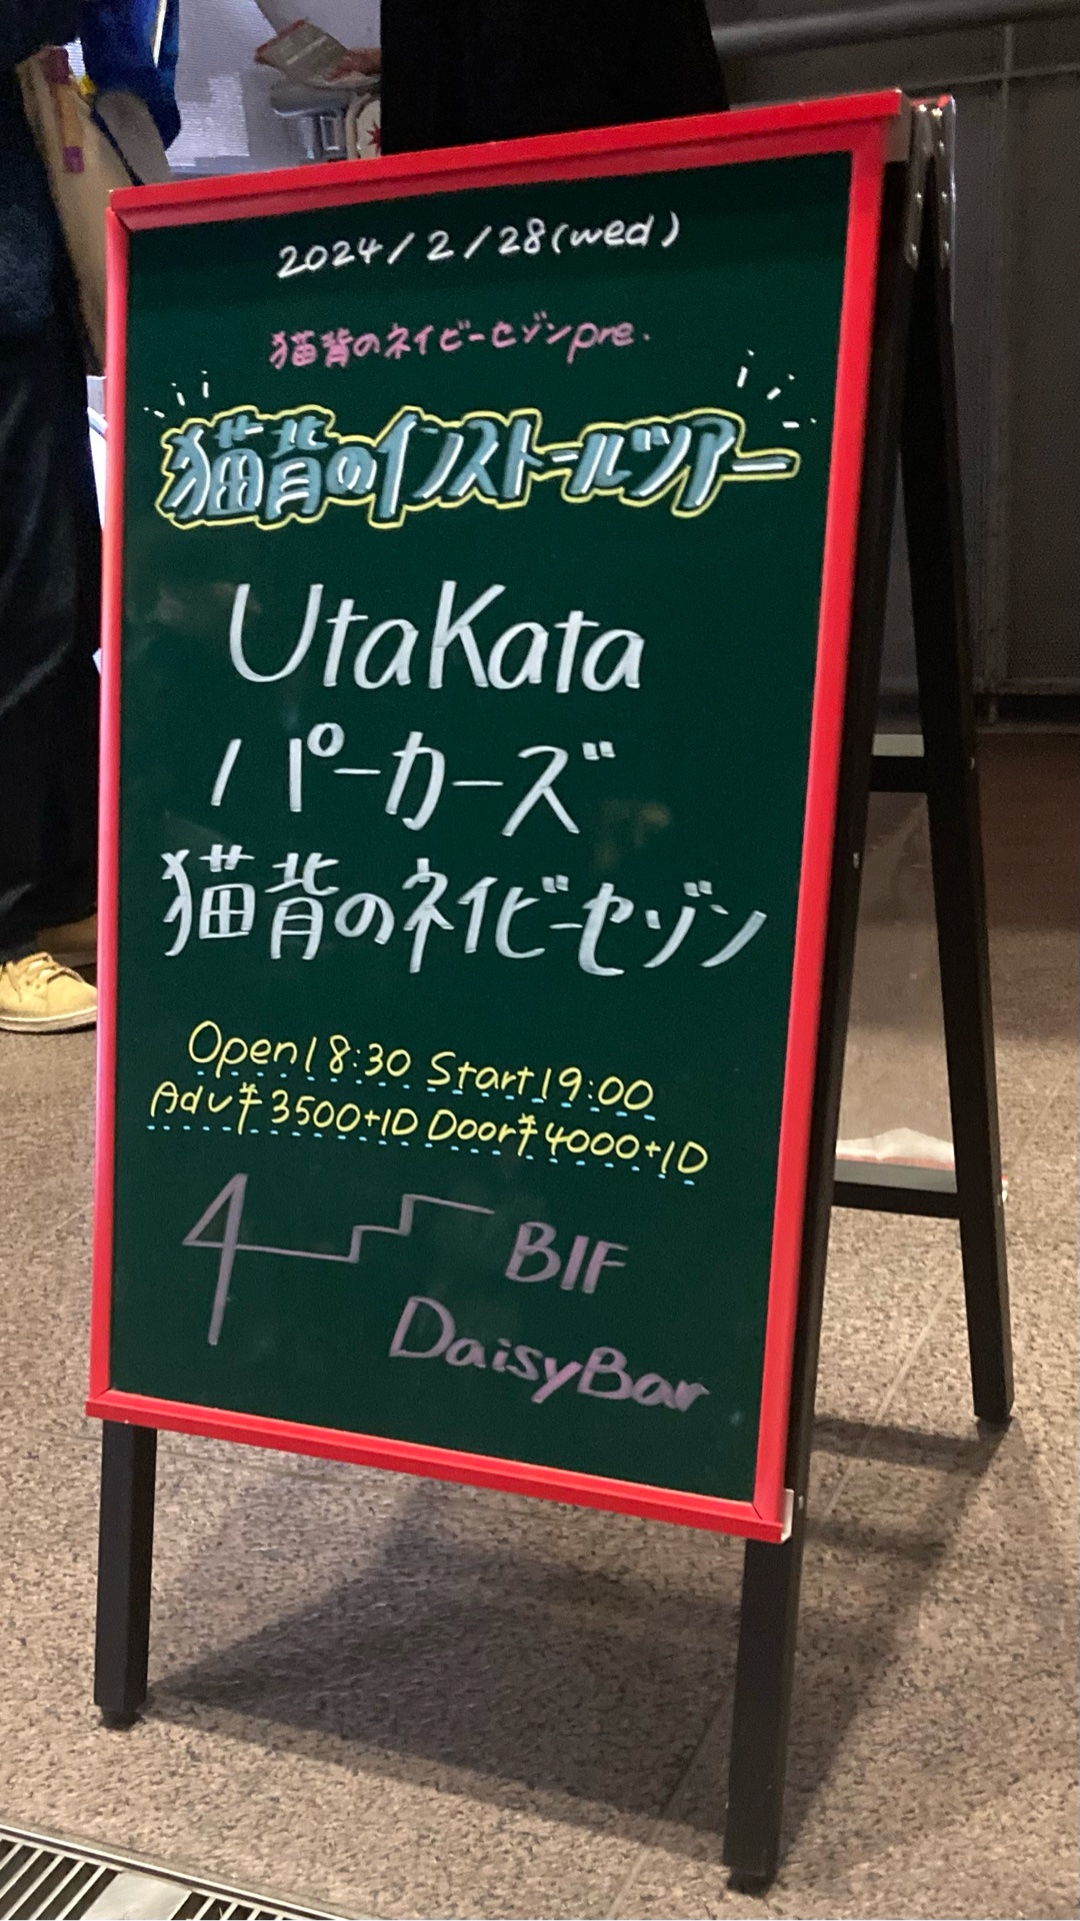 2024/2/28(wed)
猫背のネイビーセゾンpre.
猫背のインストールツアー
UtaKata
パーカーズ
猫背のネイビーセゾン
Open18:30 Start19:00
Adv¥3500+1D Door¥4000+1D
B1F
DaisyBar